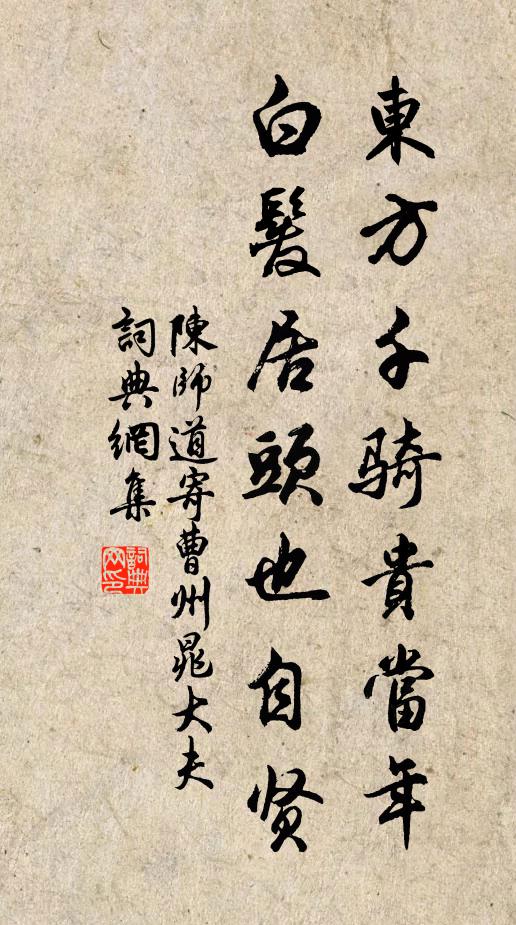 東方千骑貴當年
白髮居頭也自贤
陳師道寄曹州晁大夫
詞典網集
詞典网印